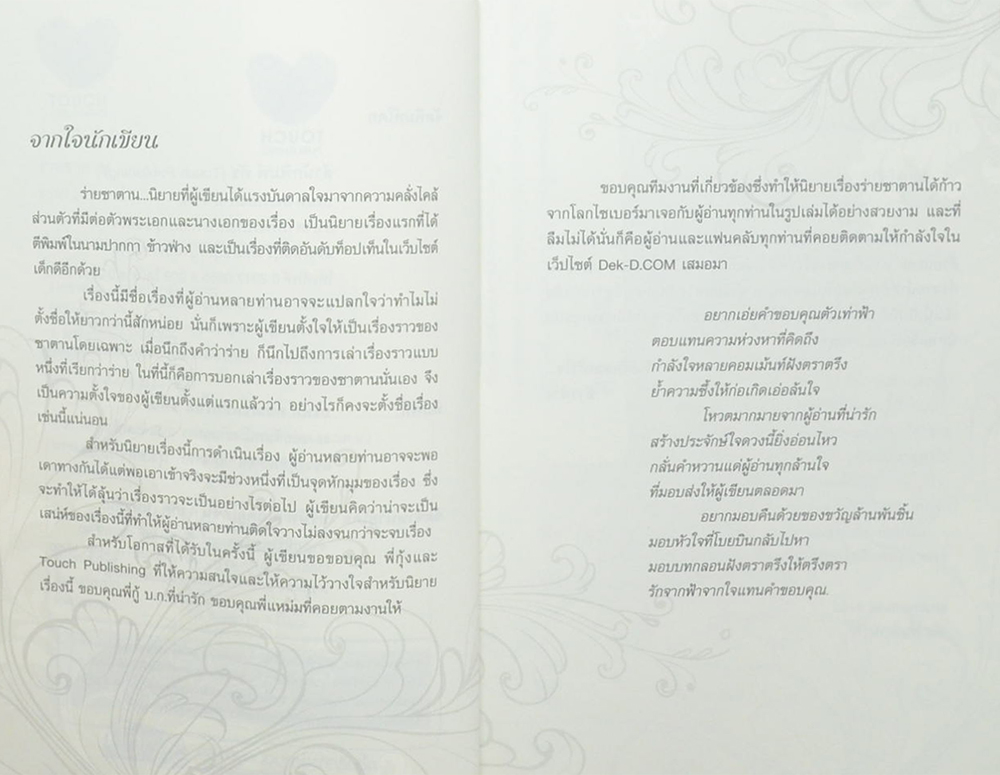 จากใจนักเขียน
ร่ายซาตาน...นิยายที่ผู้เขียนได้แรงบันดาลใจมาจากความคลั่งไคล้
ส่วนตัวที่มีต่อตัวพระเอกและนางเอกของเรื่อง เป็นนิยายเรื่องแรกที่ได้
ตีพิมพ์ในนามปากกา ข้าวฟ่าง และเป็นเรื่องที่ติดอันดับท็อปเท็นในเว็บไซต์
เด็กดีอีกด้วย
เรื่องนี้มีชื่อเรื่องที่ผู้อ่านหลายท่านอาจจะแปลกใจว่าทำไมไม่
ตั้งชื่อให้ยาวกว่านี้สักหน่อย นั่นก็เพราะผู้เขียนตั้งใจให้เป็นเรื่องราวของ
ซาตานโดยเฉพาะ เมื่อนึกถึงคำว่าร่าย ก็นึกไปถึงการเล่าเรื่องราวแบบ
หนึ่งที่เรียกว่าร่าย ในที่นี้ก็คือการบอกเล่าเรื่องราวของซาตานนั่นเอง จึง
เป็นความตั้งใจของผู้เขียนตั้งแต่แรกแล้วว่า อย่างไรก็คงจะตั้งชื่อเรื่อง
เช่นนี้แน่นอน
สำหรับนิยายเรื่องนี้การดำเนินเรื่อง ผู้อ่านหลายท่านอาจจะพอ
เดาทางกันได้แต่พอเอาเข้าจริงจะมีช่วงหนึ่งที่เป็นจุดหักมุมของเรื่อง ซึ่ง
จะทำให้ได้ลุ้นว่าเรื่องราวจะเป็นอย่างไรต่อไป ผู้เขียนคิดว่าน่าจะเป็น
เสน่ห์ของเรื่องนี้ที่ทำให้ผู้อ่านหลายท่านติดใจวางไม่ลงจนกว่าจะจบเรื่อง
สำหรับโอกาสที่ได้รับในครั้งนี้ ผู้เขียนขอขอบคุณ พี่กุ้งและ
Touch Publishing ที่ให้ความสนใจและให้ความไว้วางใจสำหรับนิยาย
เรื่องนี้ ขอบคุณพี่กู้ บ.ก.ที่น่ารัก ขอบคุณพี่แหม่มที่คอยตามงานให้
ขอบคุณทีมงานที่เกี่ยวข้องซึ่งทำให้นิยายเรื่องร่ายซาตานได้ก้าว
จากโลกไซเบอร์มาเจอกับผู้อ่านทุกท่านในรูปเล่มได้อย่างสวยงาม และที่
ลืมไม่ได้นั่นก็คือผู้อ่านและแฟนคลับทุกท่านที่คอยติดตามให้กำลังใจใน
เว็บไซต์ Dek-D.COM เสมอมา
อยากเอ่ยคำขอบคุณตัวเท่าฟ้า
ตอบแทนความห่วงหาที่คิดถึง
กำลังใจหลายคอมเม้นท์ฝังตราตรึง
ย้ำความซึ้งให้ก่อเกิดเอ่อล้นใจ
โหวตมากมายจากผู้อ่านที่น่ารัก
สร้างประจักษ์ใจดวงนี้ยิ่งอ่อนไหว
กลั่นคำหวานแด่ผู้อ่านทุกล้านใจ
ที่มอบส่งให้ผู้เขียนตลอดมา
อยากมอบคืนด้วยของขวัญล้านพันชิ้น
มอบหัวใจที่โบยบินกลับไปหา
มอบบทกลอนฝังตราตรึงให้ตรึงตรา
รักจากฟ้าจากใจแทนคำขอบคุณ.